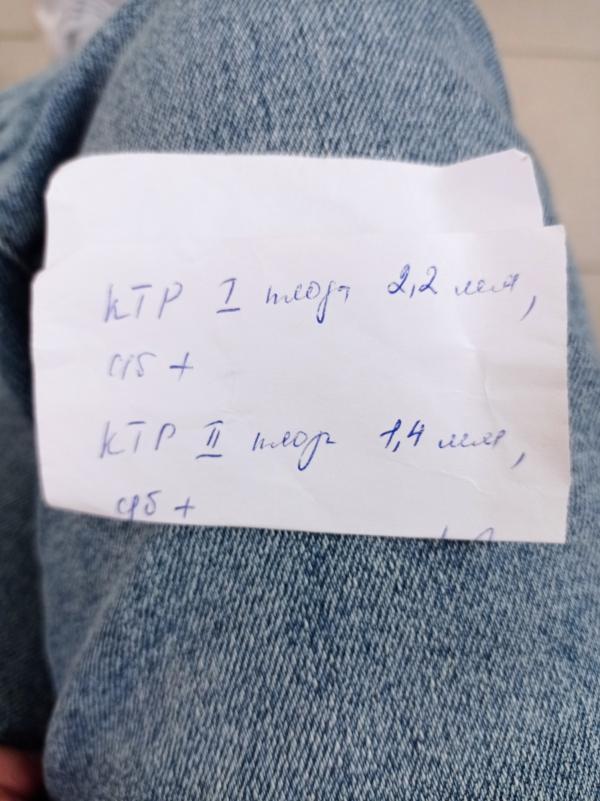 КТР I плода 2,2 мм,
с/б +
КТР II плода 1,4 мм,
с/б +